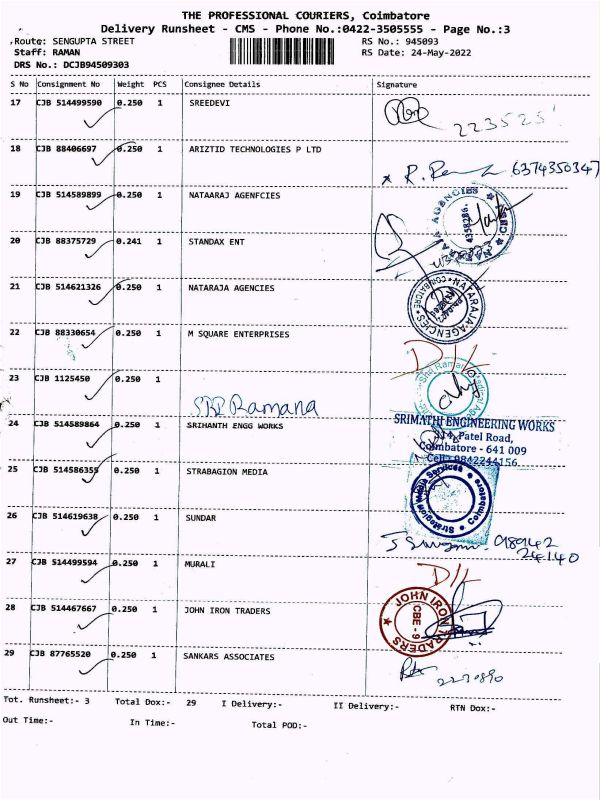 THE PROFESSIONAL COURIERS, Coimbatore
Delivery Runsheet - CMS - Phone No.:0422-3505555 - Page No.:3
Route: SENGUPTA STREET RS No.: 945093
Staff: RAMAN RS Date: 24-May-2022
DRS No.: DCJB94509303
S No Consignment No Weight PCS Consignee Details Signature
17 CJB 514499590 0.250 1 SREEDEVI
223525
18 CJB 88406697 0.250 1 ARIZTID TECHNOLOGIES P LTD
6374350347
19 CJB 514589899 0.250 1 NATAARAJ AGENFCIES
20 CJB 88375729 0.241 1 STANDAX ENT
21 CJB 514621326 0.250 1 NATARAJA AGENCIES
NATARAJ AGENCIES COIMBATORE
22 CJB 88330654 1 0.250 1 M SQUARE ENTERPRISES
D/L
23 CJB 1125450 0.250 1
SRI Ramana
24 CJB 514589864 0.250 1 SRIHANTH ENGG WORKS
SRIMATHI ENGINEERING WORKS
Patel Road,
Coimbatore - 641 009
Cell: 9842244156
25 CJB 514586355 0.250 1 STRABAGION MEDIA
26 CJB 514619638 0.250 1 SUNDAR
98942
24140
27 CJB 514499594 0.250 1 MURALI
D/L
28 CJB 514467667 0.250 1 JOHN IRON TRADERS
JOHN IRON TRADERS
CBE - 9
29 CJB 87765520 0.250 1 SANKARS ASSOCIATES
2230890
Tot. Runsheet:- 3 Total Dox:- 29 I Delivery:- II Delivery:- RTN Dox:-
Out Time:- In Time:- Total POD:-